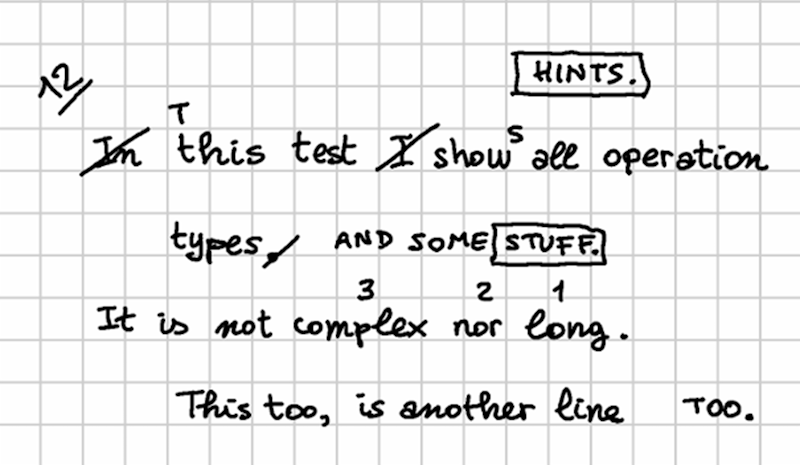 12
HINTS.
T
In this test I show s all operation
types. AND SOME STUFF.
3 2 1
It is not complex nor long.
This too, is another line TOO.